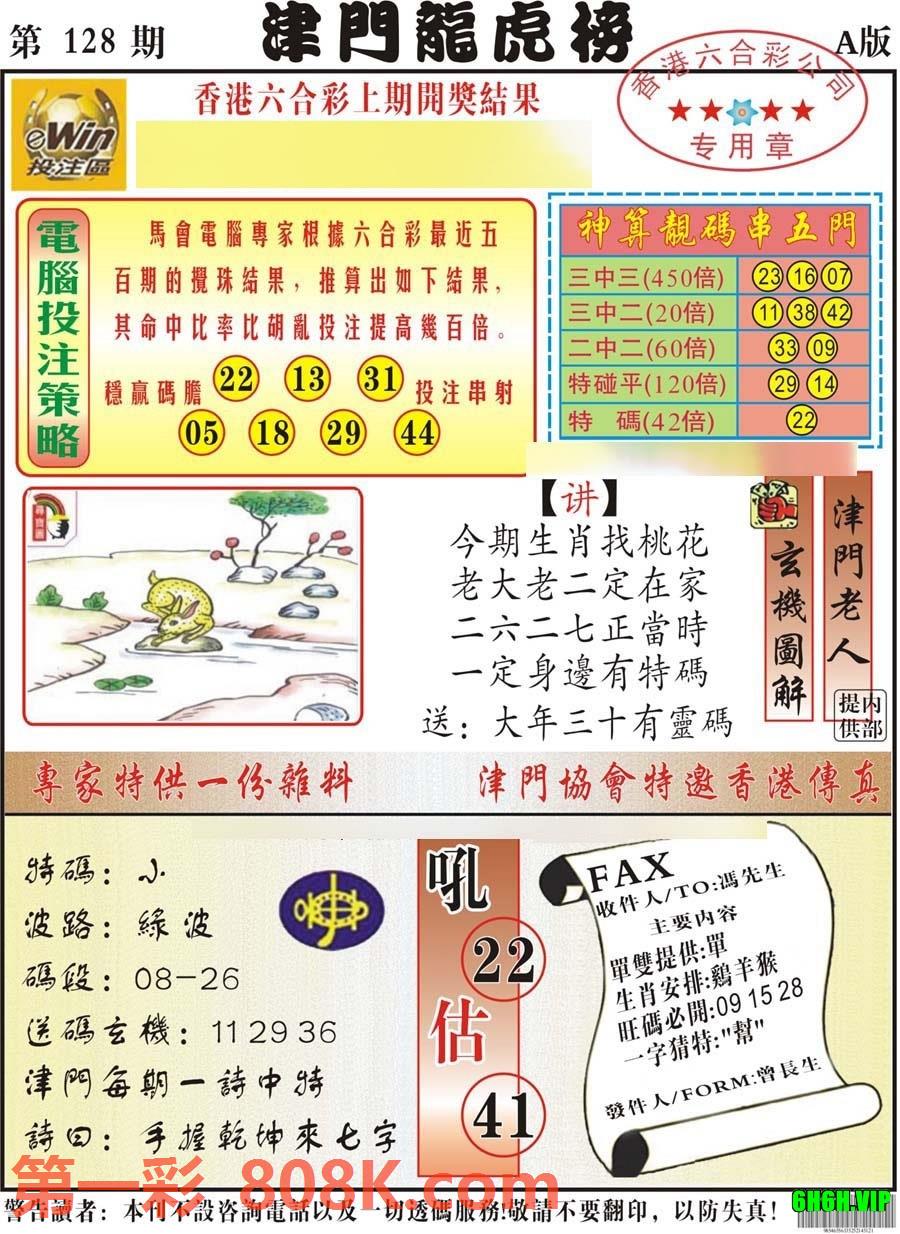 第 128 期
津門龍虎榜
A版
eWin
投注區
香港六合彩上期開獎結果
香港六合彩公司
★★★★
专用章
電腦投注策略
馬會電腦專家根據六合彩最近五
百期的攪珠結果，推算出如下結果，
其命中比率比胡亂投注提高幾百倍。
穩贏碼膽 22 13 31 投注串射
05 18 29 44
神算靚碼串五門
三中三(450倍) 23 16 07
三中二(20倍) 11 38 42
二中二(60倍) 33 09
特碰平(120倍) 29 14
特 碼(42倍) 22
尋寶圖
【讲】
今期生肖找桃花
老大老二定在家
二六二七正當時
一定身邊有特碼
送：大年三十有靈碼
玄機圖解
津門老人
内部提供
專家特供一份雜料
津門協會特邀香港傳真
特碼：小
波路：綠波
碼段：08-26
送碼玄機：11 29 36
津門每期一詩中特
詩曰：手握乾坤來七字
吼
22
估
41
FAX
收件人/TO:馮先生
主要内容
單雙提供:單
生肖安排:鷄羊猴
旺碼必開:09 15 28
一字猜特:"幫"
發件人/FORM:曾長生
第一彩 808K.com
警告讀者：本刊不設咨詢電話以及一切透碼服務!敬請不要翻印，以防失真！
6H6H.VIP